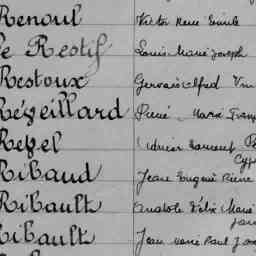 Renoul Victor René Emile
Le Restif Louis Marie Joseph
Restoux Gervais Alfred
Réveillard René Marie
Revel Adrien Laurent
Ribaud Jean Eugène Pierre
Ribault Anatole Félix Marie
Ribault Jean Marie Paul